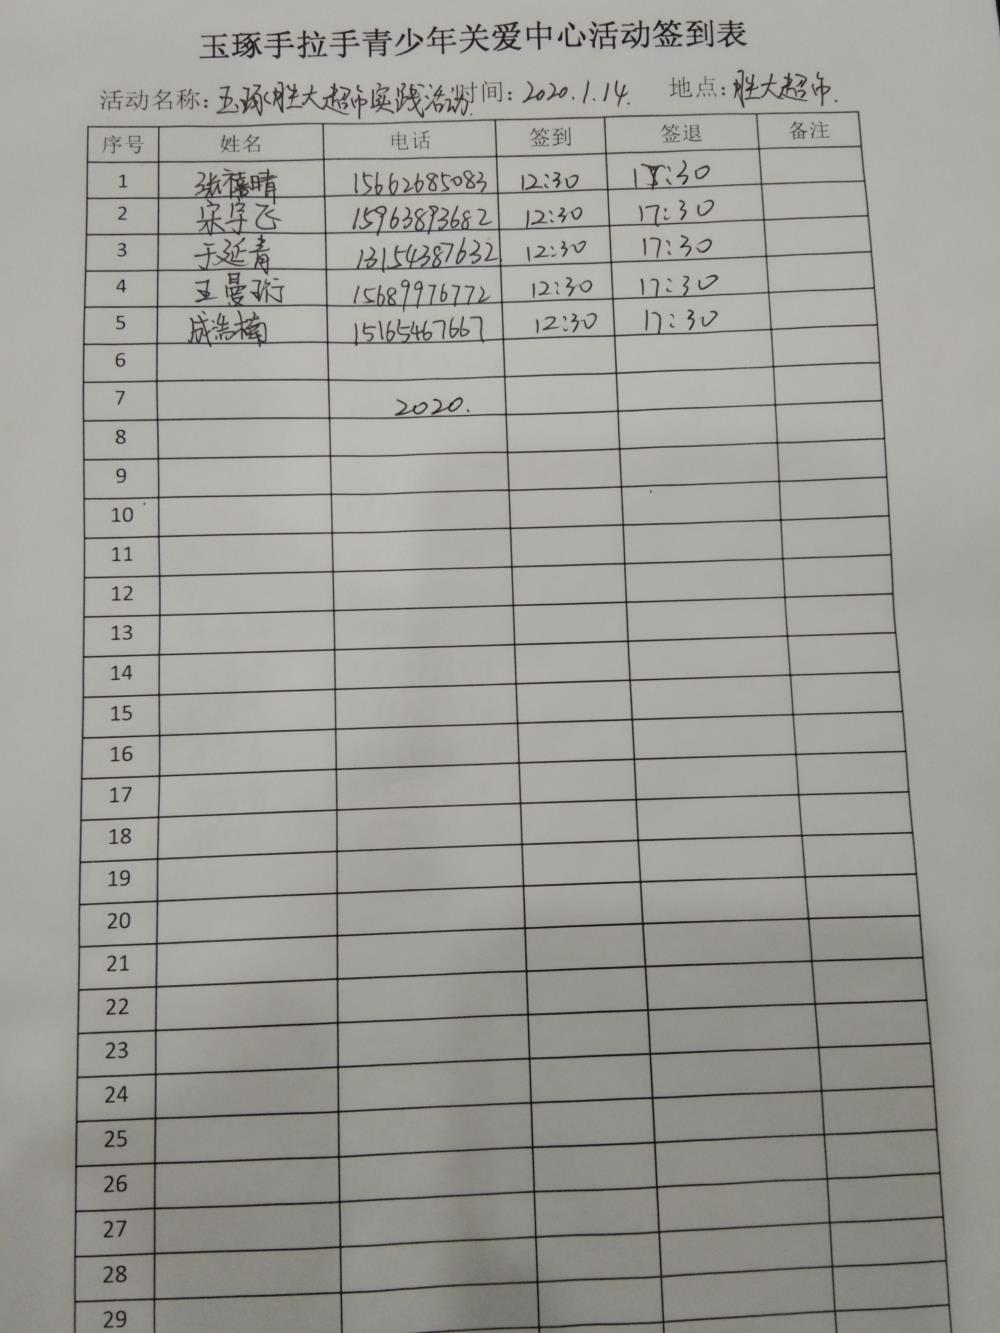 玉琢手拉手青少年关爱中心活动签到表
活动名称：玉琢胜大超市实践活动 时间：2020.1.14. 地点：胜大超市.
序号 姓名 电话 签到 签退 备注
1 张禧晴 15662685083 12:30 17:30
2 宋宇飞 15963893682 12:30 17:30
3 于延青 13154387632 12:30 17:30
4 王曼珩 15689976772 12:30 17:30
5 成浩楠 15165467667 12:30 17:30
6
7 2020.
8
9
10
11
12
13
14
15
16
17
18
19
20
21
22
23
24
25
26
27
28
29